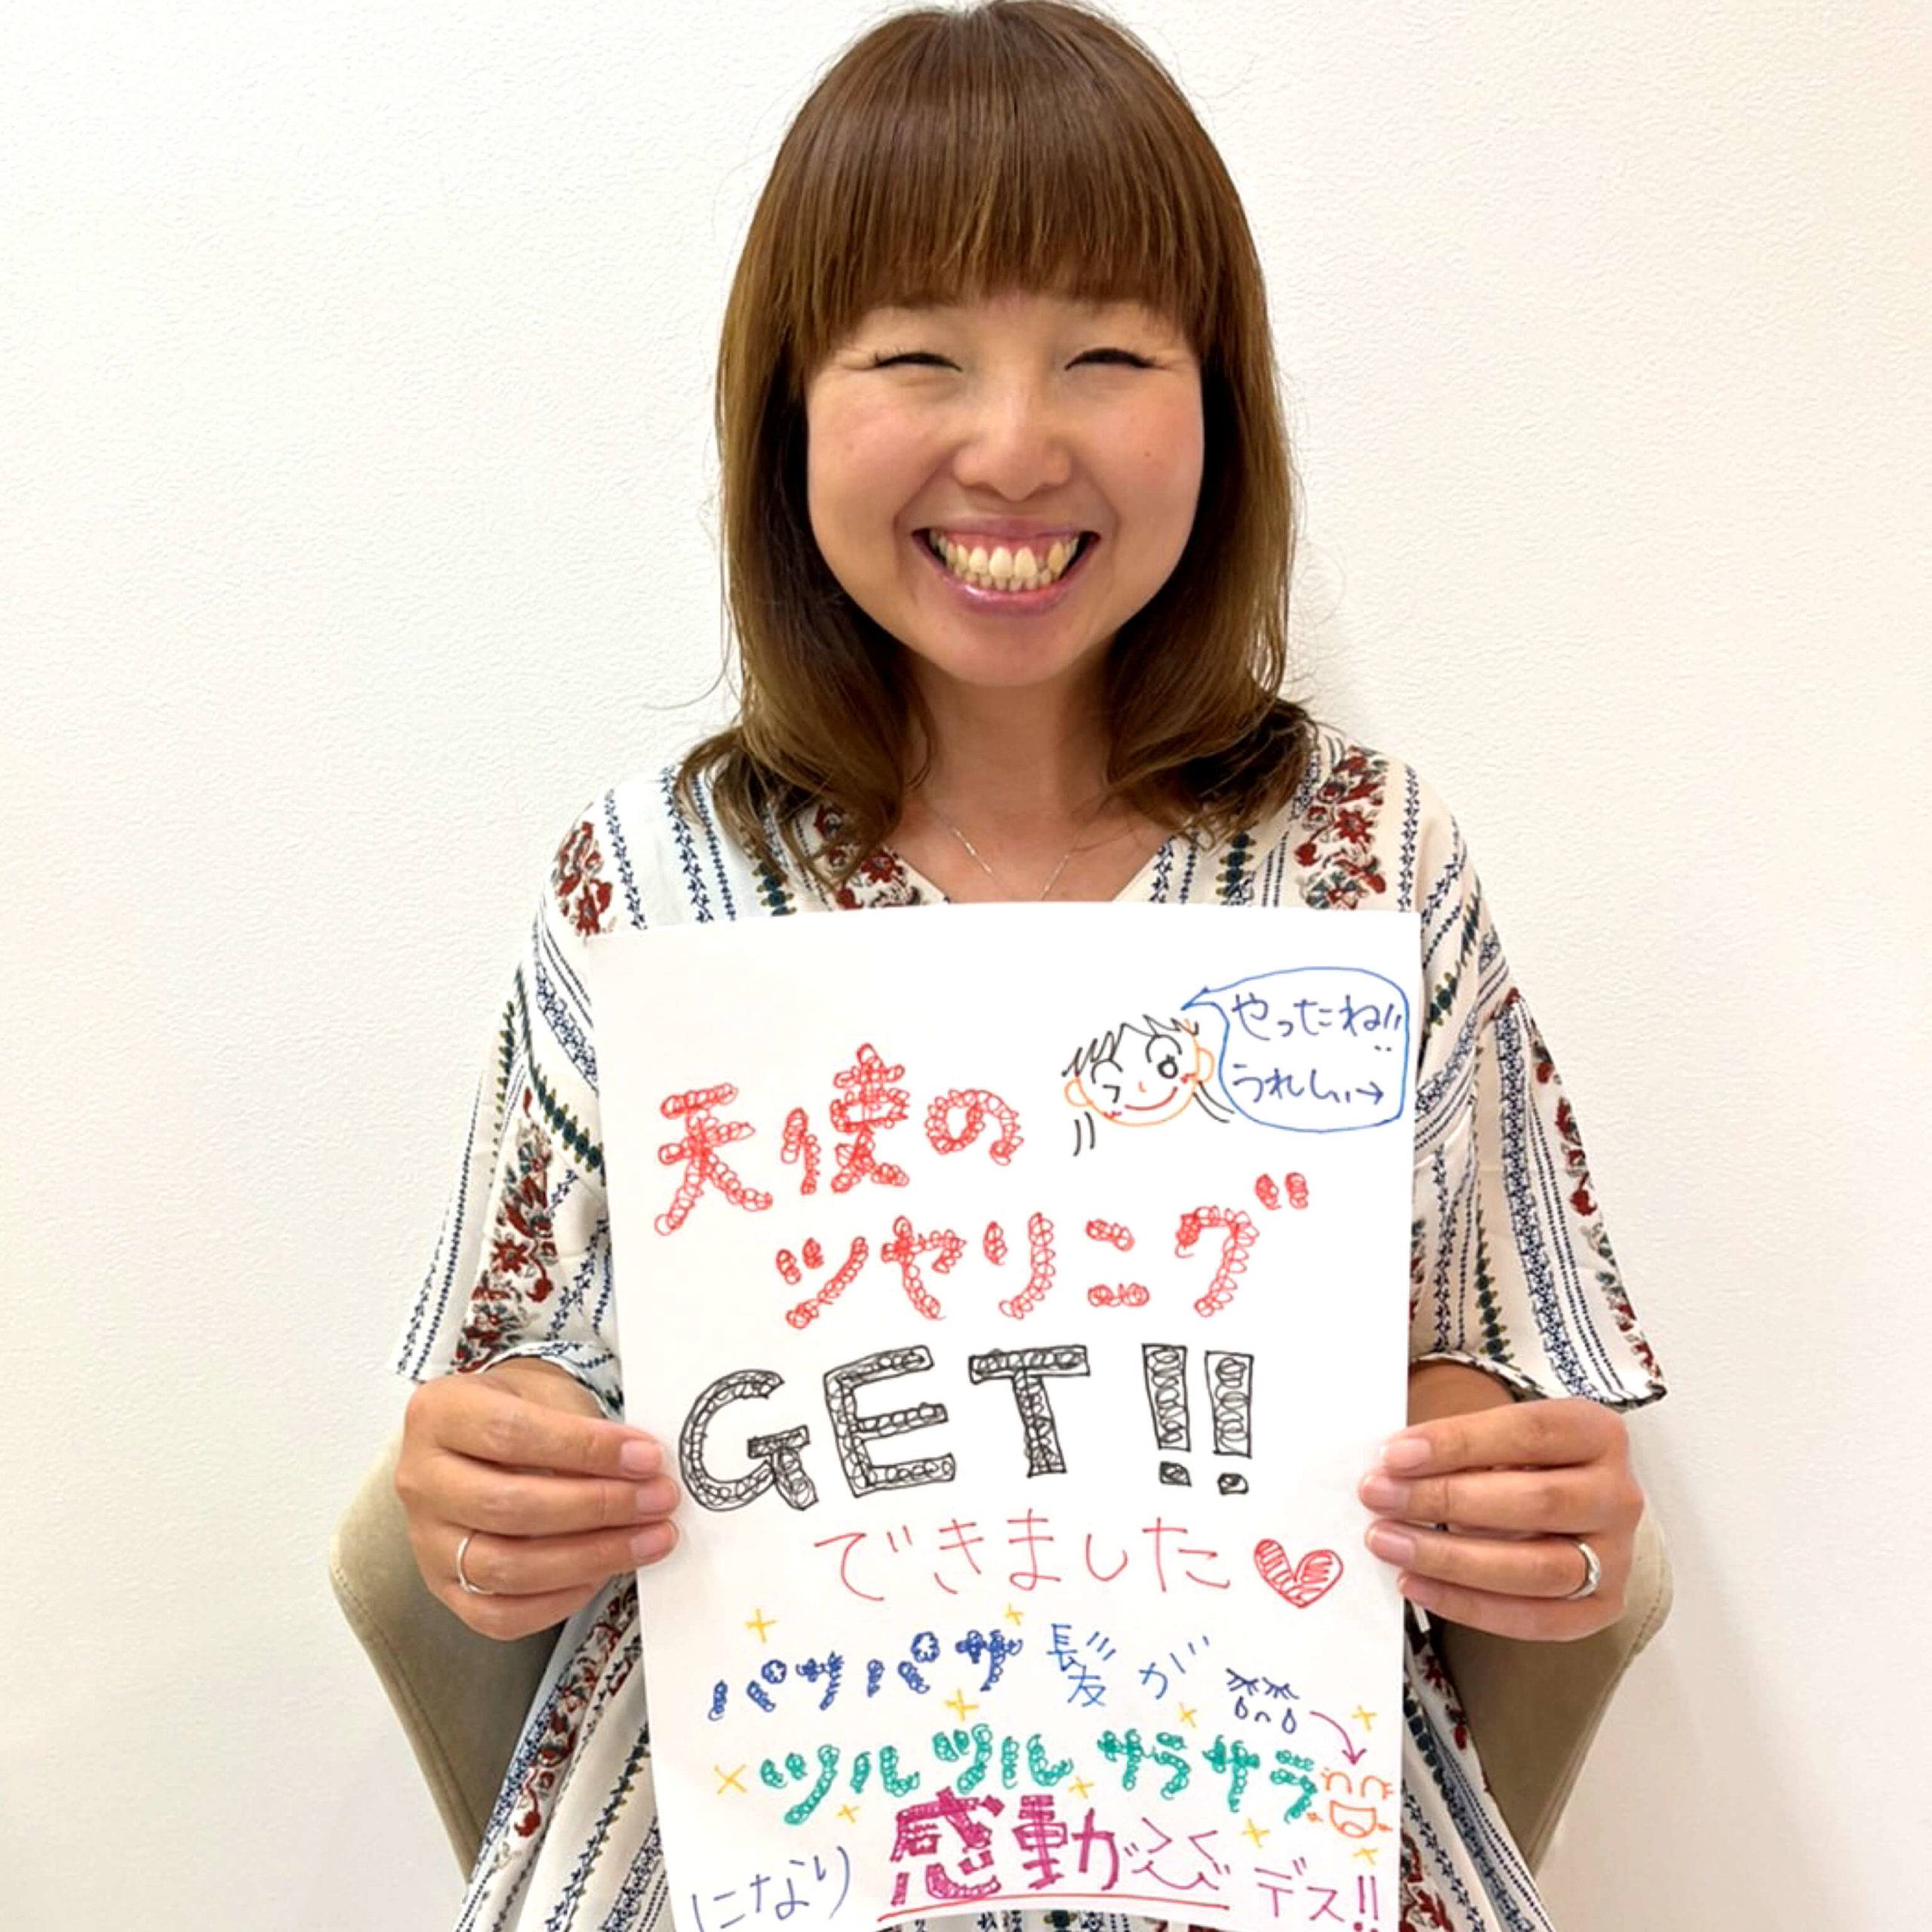 やったね!!
うれしい→
天使の
ツヤリング
GET!!
できました
パサパサ髪が
ツルツルサラサラ
になり 感動がいっぱい デス!!